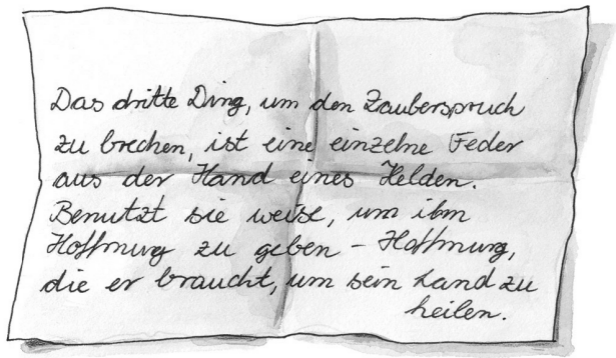 Das dritte Ding, um den Zauberspruch
zu brechen, ist eine einzelne Feder
aus der Hand eines Helden.
Benutzt sie weise, um ihm
Hoffnung zu geben – Hoffnung,
die er braucht, um sein Land zu
heilen.